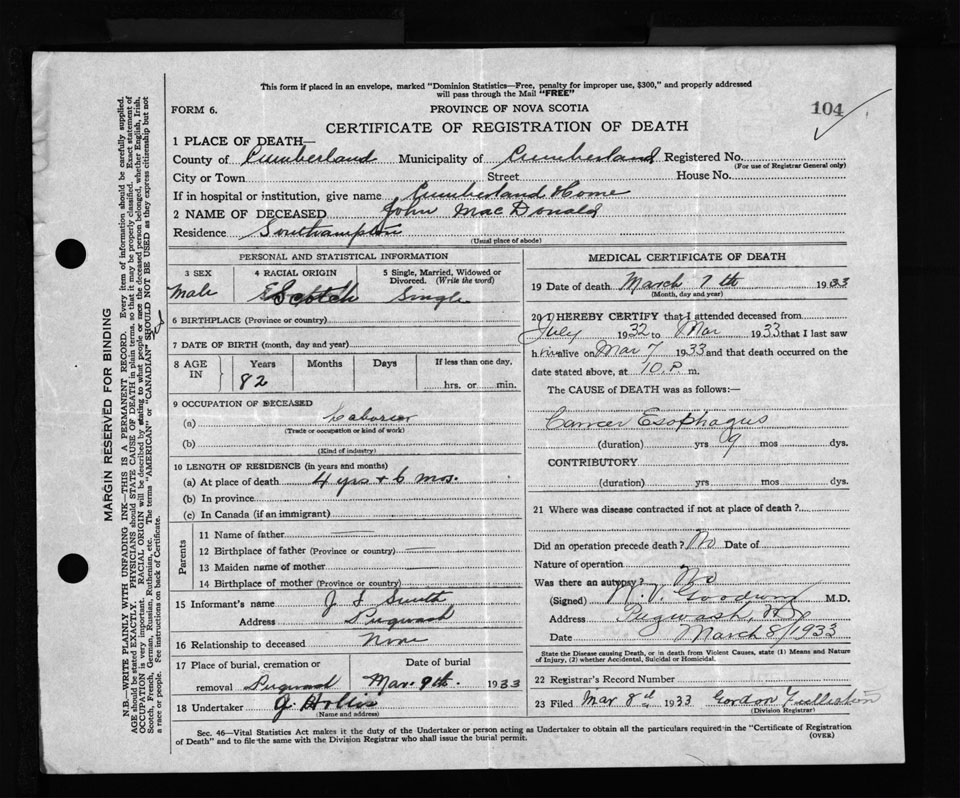 This form if placed in an envelope, marked "Dominion Statistics—Free, penalty for improper use, $300," and properly addressed
will pass through the Mail "FREE"
FORM 6.
PROVINCE OF NOVA SCOTIA
104
CERTIFICATE OF REGISTRATION OF DEATH
1 PLACE OF DEATH—
County of Cumberland Municipality of Cumberland Registered No.
(For use of Registrar General only)
City or Town Street House No.
If in hospital or institution, give name Cumberland Home
2 NAME OF DECEASED John MacDonald
Residence Southampton
(Usual place of abode)
PERSONAL AND STATISTICAL INFORMATION
3 SEX 4 RACIAL ORIGIN 5 Single, Married, Widowed or Divorced. (Write the word)
Male Scotch Single
6 BIRTHPLACE (Province or country)
7 DATE OF BIRTH (month, day and year)
8 AGE IN Years Months Days If less than one day,
82 hrs. or min.
9 OCCUPATION OF DECEASED
(a) Laborer
(Trade or occupation or kind of work)
(b)
(Kind of industry)
10 LENGTH OF RESIDENCE (in years and months)
(a) At place of death 4 yrs + 6 mos.
(b) In province
(c) In Canada (if an immigrant)
Parents
11 Name of father —
12 Birthplace of father (Province or country) —
13 Maiden name of mother —
14 Birthplace of mother (Province or country)
15 Informant's name J. Smith
Address Pugwash
16 Relationship to deceased None
17 Place of burial, cremation or removal Date of burial
Pugwash Mar. 9th. 1933
18 Undertaker J. Hollis
(Name and address)
MEDICAL CERTIFICATE OF DEATH
19 Date of death March 7th 1933
(Month, day and year)
20 I HEREBY CERTIFY that I attended deceased from
July 1932 to Mar 1933 that I last saw
him alive on Mar 7 1933 and that death occurred on the
date stated above, at 10 P. m.
The CAUSE of DEATH was as follows:—
Cancer Esophagus
(duration) yrs 9 mos dys.
CONTRIBUTORY
(duration) yrs mos dys.
21 Where was disease contracted if not at place of death?
Did an operation precede death? No Date of
Nature of operation
Was there an autopsy? No
(Signed) Goodwin M.D.
Address Pugwash, N.S.
Date March 8/1933
State the Disease causing Death, or in death from Violent Causes, state (1) Means and Nature
of Injury, (2) whether Accidental, Suicidal or Homicidal.
22 Registrar's Record Number
23 Filed Mar 8th 1933 Gordon
(Division Registrar)
Sec. 46—Vital Statistics Act makes it the duty of the Undertaker or person acting as Undertaker to obtain all the particulars required in the "Certificate of Registration
of Death" and to file the same with the Division Registrar who shall issue the burial permit.
(OVER)
MARGIN RESERVED FOR BINDING
N.B.—WRITE PLAINLY WITH UNFADING INK—THIS IS A PERMANENT RECORD. Every item of information should be carefully supplied.
AGE should be stated EXACTLY. PHYSICIANS should STATE CAUSE OF DEATH in plain terms, so that it may be properly classified. Exact statement of
OCCUPATION is very important. RACIAL ORIGIN will be described by stating to what people or race the deceased person belonged, whether English, Irish,
Scotch, French, German, Russian, Ruthenian, etc. The terms "AMERICAN" or "CANADIAN" SHOULD NOT BE USED as they express citizenship but not
a race or people. Fee instructions on back of Certificate.